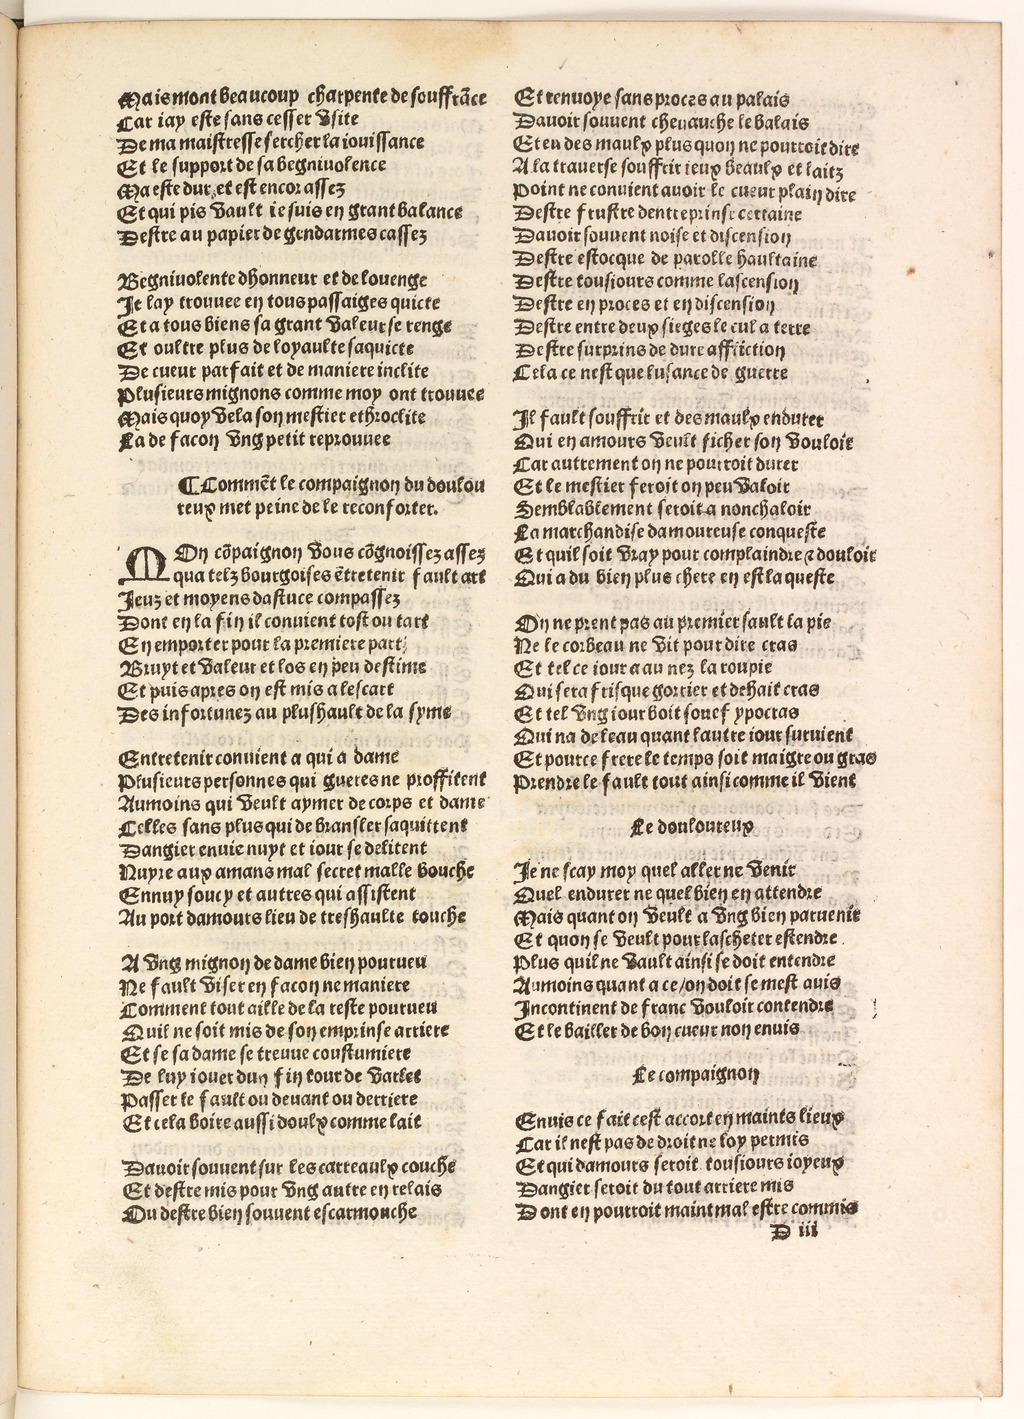 Mais mont beaucoup charpente de souffrãce
Car iay este sans cesser vsite
De ma maistresse sercher la iouissance
Et le support de sa begniuolence
Ma este dur, et est encor assez
Et qui pis vault ie suis en grant balance
Destre au papier de gendarmes cassez
Begniuolente dhonneur et de louenge
Je lay trouuee en tous passaiges quicte
Et a tous biens sa grant valeur se renge
Et oultre plus de loyaulte saquicte
De cueur parfait et de maniere inclite
Plusieurs mignons comme moy ont trouuee
Mais quoy vela son mestier ethroclite
La de facon vng petit reprouuee
¶ Commẽt le compaignon du doulou
reux met peine de le reconforter.
MOn cõpaignon vous cõgnoissez assez
qua telz bourgoises ẽtretenir fault art
Jeuz et moyens dastuce compassez
Dont en la fin il conuient tost ou tart
En emporter pour la premiere part
Bruyt et valeur et los en peu destime
Et puis apres on est mis a lescart
Des infortunez au plushault de la syme
Entretenir conuient a qui a dame
Plusieurs personnes qui gueres ne proffitent
Aumoins qui veult aymer de corps et dame
Celles sans plus qui de bransler saquittent
Dangier enuie nuyt et iour se delitent
Nuyre aux amans mal secret malle bouche
Ennuy soucy et autres qui assistent
Au port damours lieu de treshaulte touche
A vng mignon de dame bien pourueu
Ne fault viser en facon ne maniere
Comment tout aille de la reste pourueu
Quil ne soit mis de son emprinse arriere
Et se sa dame se treuue coustumiere
De luy iouer dun fin tour de varlet
Passer le fault ou deuant ou derriere
Et cela boire aussi doulx comme lait
Dauoir souuent sur les carreaulx couche
Et destre mis pour vng autre en relais
Ou destre bien souuent escarmouche
Et renuoye sans proces au palais
Dauoir souuent cheuauche le balais
Et eu des maulx plus quon ne pourroit dire
A la trauerse souffrir ieux beaulx et laitz
Point ne conuient auoir le cueur plain dire
Destre frustre dentreprinse certaine
Dauoir souuent noise et discension
Destre estocque de parolle haultaine
Destre tousiours comme lascension
Destre en proces et en discension
Destre entre deux sieges le cul a terre
Destre surprins de dure affliction
Cela ce nest que lusance de guerre
Il fault souffrir et des maulx endurer
Qui en amours veult ficher son vouloir
Car autrement on ne pourroit durer
Et le mestier feroit on peu valoir
Semblablement seroit a nonchaloir
La marchandise damoureuse conqueste
Et quil soit vray pour complaindre & douloir
Qui a du bien plus chere en est la queste
On ne prent pas au premier sault la pie
Ne le corbeau ne vit pour dire cras
Et tel ce iour a au nez la roupie
Qui sera frisque gorrier et dehait cras
Et tel vng iour boit souef ypocras
Qui na de leau quant lautre iour suruient
Et pource frere le temps soit maigre ou gras
Prendre le fault tout ainsi comme il vient
Le douloureux
Je ne scay moy quel aller ne venir
Quel endurer ne quel bien en attendre
Mais quant on veult a vng bien paruenir
Et quon se veult pour lascheter estendre.
Plus quil ne vault ainsi se doit entendre
Aumoins quant a ce/on doit se mest auis
Incontinent de franc vouloir contendre
Et le bailler de bon cueur non enuis
Le compaignon
Enuis ce fait cest accort en maints lieux
Car il nest pas de droit ne loy permis
Et qui damours seroit tousiours ioyeux
Dangier seroit du tout arriere mis
Dont en pourroit maint mal estre commis
D iii